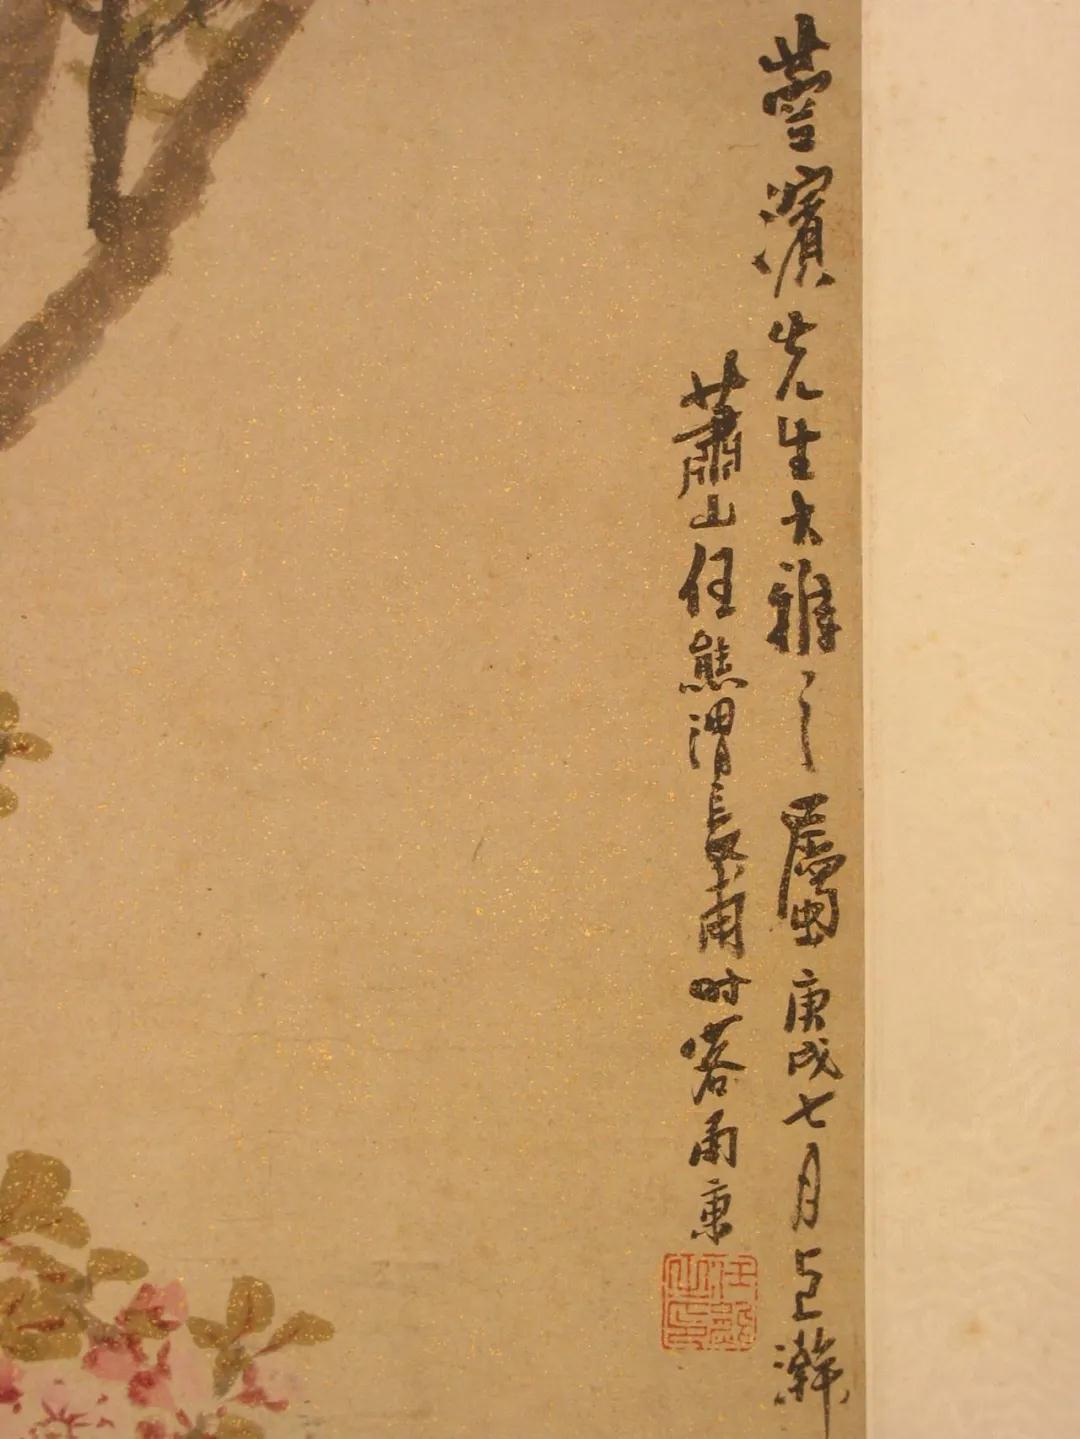 蓉濱先生大雅之屬庚戌七月上澣
蕭山任熊渭長甫时客甬東
任熊之印